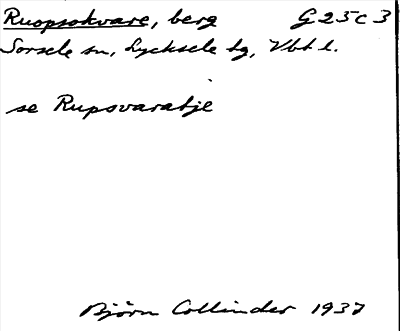 Ruopsokvare, berg G25c3
Sorsele sn, Lycksele tg, Vbt l.
se Rupsvaratje
Björn Collinder 1937